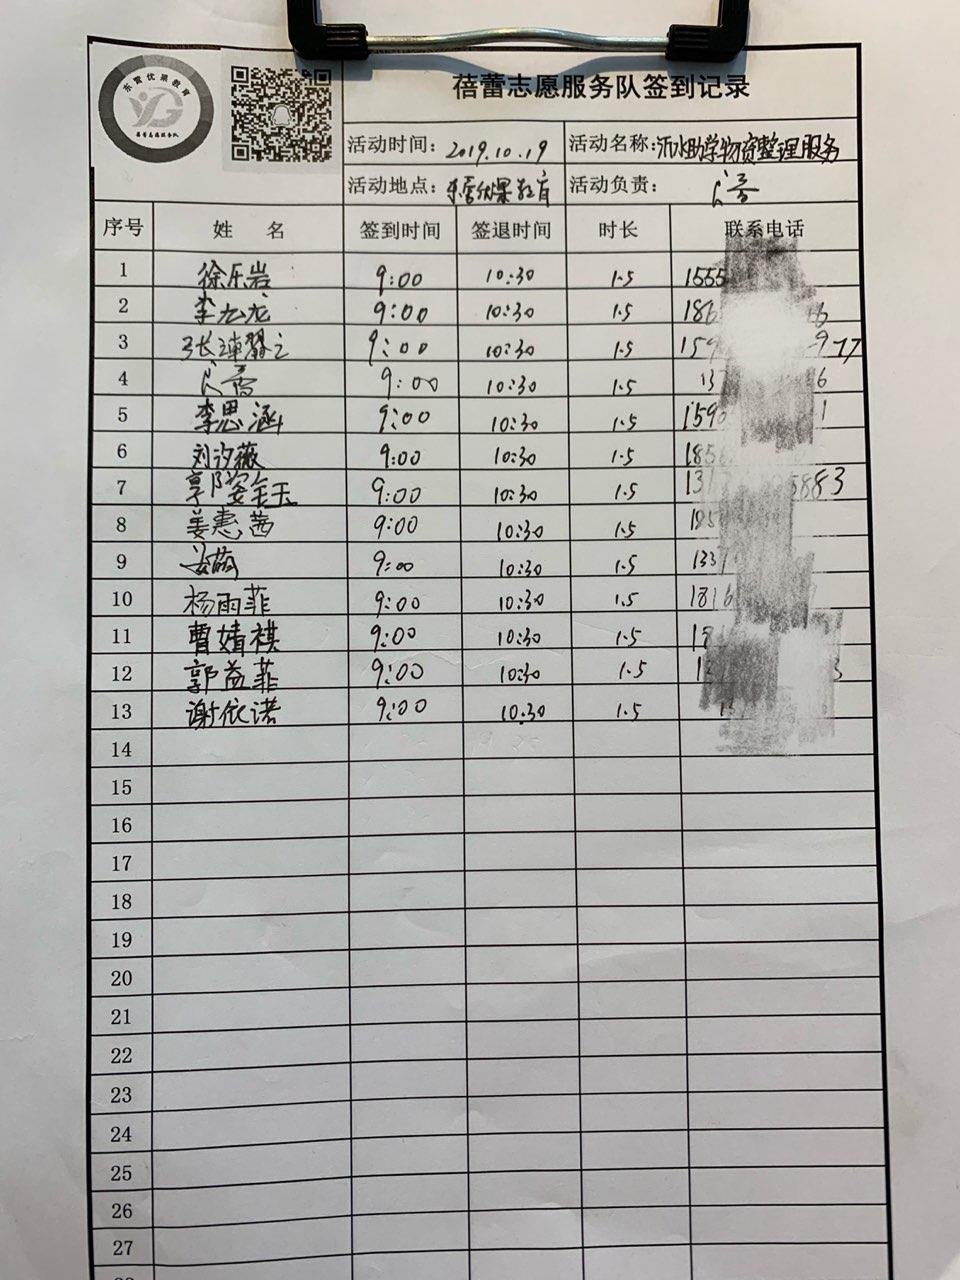 东营优果教育
蓓蕾志愿服务队
蓓蕾志愿服务队签到记录
活动时间: 2019.10.19 活动名称: 沂水助学物资整理服务
活动地点: 东营优果教育 活动负责:
序号 姓 名 签到时间 签退时间 时长 联系电话
1 徐乐岩 9:00 10:30 1.5 1555
2 9:00 10:30 1.5 186
3 9:00 10:30 1.5 159 977
4 9:00 10:30 1.5 13 6
5 李思涵 9:00 10:30 1.5 1590 1
6 刘汐薇 9:00 10:30 1.5 185
7 9:00 10:30 1.5 13 5883
8 姜惠茜 9:00 10:30 1.5
9 9:00 10:30 1.5 133
10 杨雨菲 9:00 10:30 1.5 1816
11 曹婧祺 9:00 10:30 1.5
12 郭益菲 9:00 10:30 1.5 3
13 谢依诺 9:00 10:30 1.5
14
15
16
17
18
19
20
21
22
23
24
25
26
27